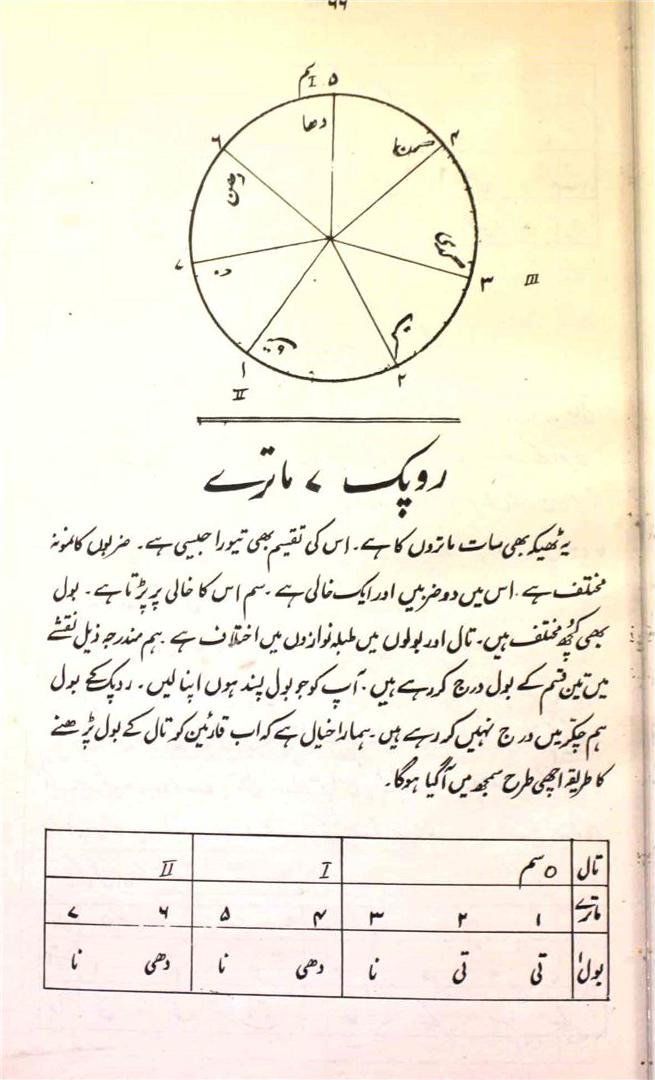 ۶۶
سم I ۵
۴
۳ III
۲
۱
II
۷
۶
دھا
دھن
روپک ۷ ماترے
یہ ٹھیکہ بھی سات ماتروں کا ہے۔ اس کی تقسیم بھی تیورا جیسی ہے۔ ضربوں کا نمونہ
مختلف ہے۔ اس میں دو ضربیں اور ایک خالی ہے۔ سم اس کا خالی پر پڑتا ہے۔ بول
بھی کچھ مختلف ہیں۔ تال اور بولوں میں طبلہ نوازوں میں اختلاف ہے۔ ہم مندرجہ ذیل نقشے
میں تین قسم کے بول درج کر رہے ہیں۔ آپ کو جو بول پسند ہوں اپنا لیں۔ روپک کے بول
ہم چکّر میں درج نہیں کر رہے ہیں۔ ہمارا خیال ہے کہ اب قارئین کو تال کے بول پڑھنے
کا طریقہ اچھی طرح سمجھ میں آگیا ہوگا۔
تال ○ سم I II
ماترے ۱ ۲ ۳ ۴ ۵ ۶ ۷
بول تی تی نا دھی نا دھی نا